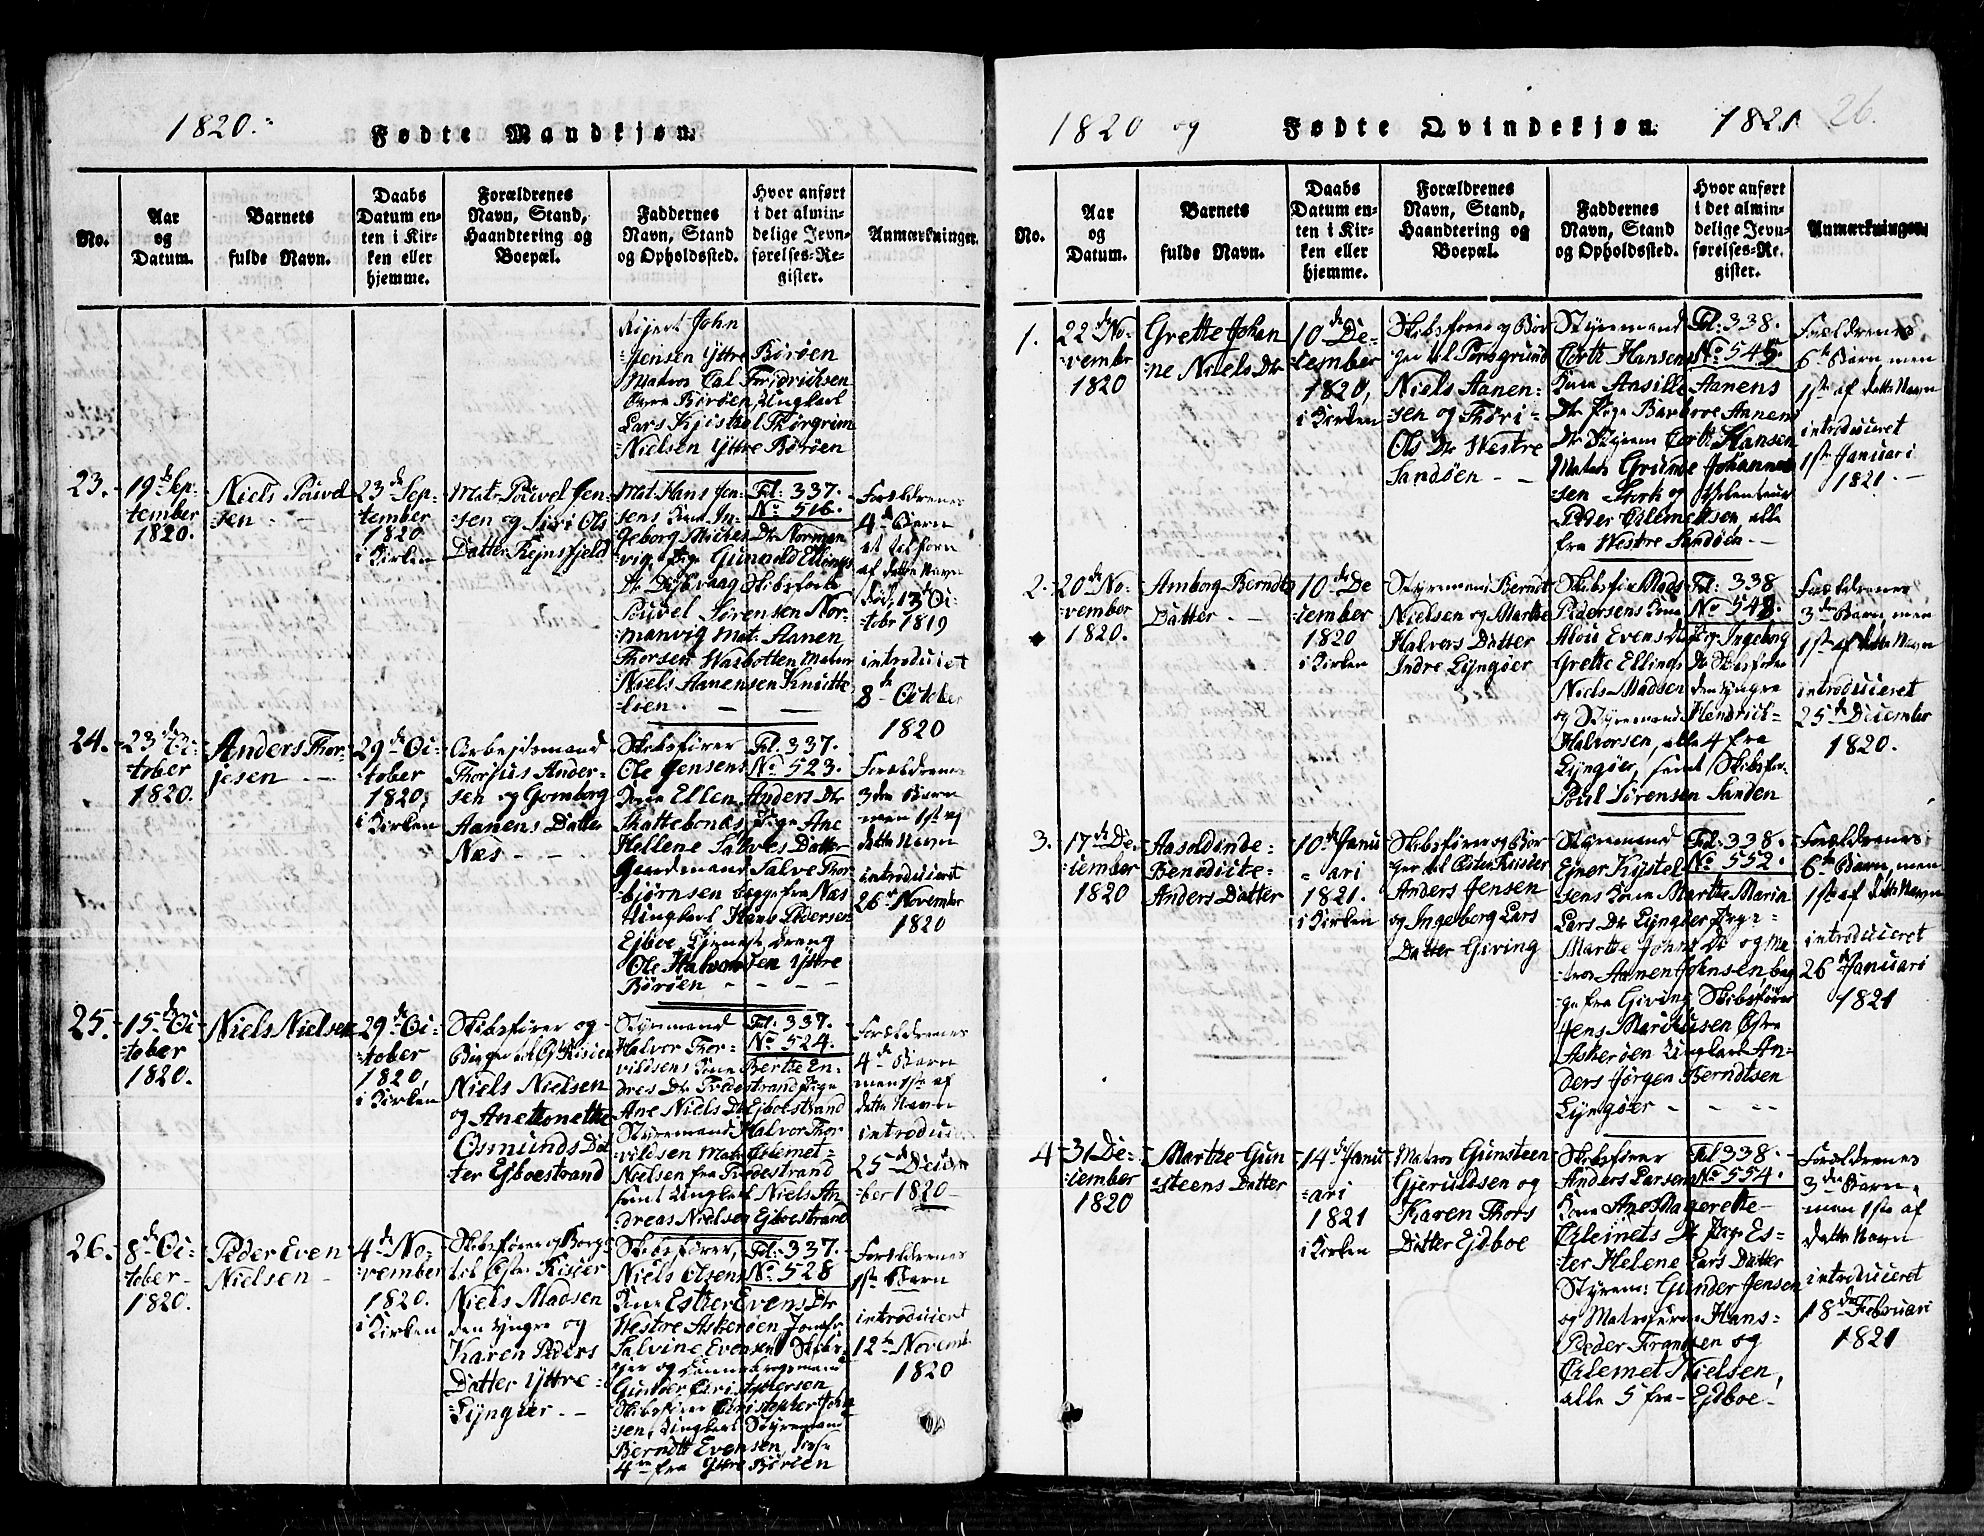 1820.
Fødte Mandkjøn.
No.
Aar
og
Datum.
Barnets
fulde Navn.
Daabs
Datum en-
ten i Kir-
ken eller
hjemme.
Forældrenes
Navn, Stand,
Haandtering og
Boepæl.
Faddernes
Navn, Stand
og Opholdssted.
Hvor anført
i det almin-
delige Jevn-
førelses-Re-
gister.
Anmærkninger.
John
Jensen Yttre Børøen
Matros Fridriksen
Børøen, Ungkarl
Lars Kjøstel Thorgrim
Nielsen Yttre Børøen
23.
19de Sep-
tember
1820.
Niels Pouvel
sen
23de Sep-
tember
1820
i Kirken
Matr. Pouvel Jen-
sen og Siri Ols
Datter
Mat. Hans Jen-
sens Kone In-
geborg Dtr Norman
vig, Pige Gunnald Ellings
Dtr Dybvaag Skibsfører
Pouvel Sørensen Nor-
manvig Mat. Aanen
Thorsen Matr
Niels Aanensen
Fol: 337.
No 516.
Forældrenes
4de Barn
af dette Navn
død, 13de Oc-
tobr 1819
introduceret
8de October
1820
24.
23de Oc-
tober
1820.
Anders Thor-
jesen
29de Oc-
tober
1820,
i Kirken
Arbejdsmand
Thorjus Ander-
sen og Gomborg
Aanens Datter
Næs
Skibsfører
Ole Jensens
Kone Ellen Anders Dtr
Skattebonæs Pige Ane
Hellene Salves Datter
Gaardmand Salve Thor-
bjørnsen begge fra Næs
Ungkarl Hans Pedersen
Ejboe, Tjeneste dreng
Ole Halvorsen Yttre
Børøen
Fol. 337.
No 523.
Forældrenes
3die Barn
men 1ste af
dette Navn
introduceret
26de November
1820
25.
15de Oc-
tober
1820.
Niels Nielsen
29de Oc-
tober
1820,
i Kirken
Skibsfører og
Borger til
Niels Nielsen
og Anettmette
Osmunds Dat
ter Ejboestrand
Styremand
Halvor Thor-
vildsens Kone Berthe En-
dres Dtr Tvedestrand Pige
Ane Niels Dtr Ejboestrand
Styremand Halvor Thor
vildsen Matr. Erlemet
Nielsen fra Tvedestrand
samt Ungkarl Niels An
dreas Nielsen Ejboestrand
Fol: 337.
No 524.
Forældrenes
4de Barn
men 1ste af
dette Navn
introduce
25de Decem
ber 1820
26.
8de Oc-
tober
1820.
Peder Even
Nielsen
4de No-
vember
1820.
i Kirken
Skibsfører og Borger
til Øster Risøer
Niels Madsen
den yngre og
Karen Peders
Datter Yttre
Lyngøer
Skibsfører,
Niels Olsens
Kone Esther Evens Dtr
Westre Askerøen Jomfr
Salvine Evensen Skibs-
Gunder Christophersen
Skibsfører Christopher John
sen, Ungkarl Styremand
Berndt Evensen,
4re fra Yttre Børøen
Fol: 337.
No 528
Forældrenes
1ste Barn
introduceret
12te Novemb
1820
1820 og
Fødte Qvindekjøn.
1821
26.
No.
Aar
og
Datum.
Barnets
fulde Navn.
Daabs
Datum en-
ten i Kir-
ken eller
hjemme.
Forældrenes
Navn, Stand,
Haandtering og
Boepæl.
Faddernes
Navn, Stand
og Opholdssted.
Hvor anført
i det almin-
delige Jevn-
førelses-Re-
gister.
Anmærkninger.
1.
22de No-
vember
1820
Grethe Johan
ne Niels Dtr
10de De-
cember
1820,
i Kirken
Skibsfører og Bor
ger til Porsgrund
Niels Aanen-
sen og Thori
Ols Dtr Westre
Sandøen
Styremand
Corth Hansens
Kone Aasille Aanens
Dtr Pige Barbore Aanens
Dtr Styrem Corth Hansen
Matros Grunde Johannes
sen Stork og
Peder Erlemetsen, alle
fra Westre Sandøen
Fol: 338.
No 545.
Forældrenes
6te Barn men
1ste af dette Navn
introduceret
1ste Januari
1821.
2.
20de No-
vember
1820.
Amborg Berndts
Datter
10de De
cember
1820
i Kirken
Styremand Berndt
Nielsen og Marthe
Halvors Datter
Indre Lyngøer
Skibsfør Mads
Pedersens Kone
Evens Dtr Pige Ingeborg
Grethe Ellings Dtr Skibsfører
Niels Madsen den yngre
og Styremand Hendrich
Halvorsen, alle 4 fra
Lyngøer, samt Skibsfør
Poul Sørensen Sanden
Fol: 338
No 548.
Forældrenes
3die Barn, men
1ste af dette Navn
introduceret
25de December
1820.
3.
17de De-
cember
1820
Aasoldinde-
Benedicte
Anders Datter
10de Janu
ari
1821.
i Kirken
Skibsfører og Bor
ger til Øster Risøer
Anders Jensen
og Ingeborg Lars
Datter Giving
Styremand
Ejner Kjøstel
sens Kone Marthe Maria
Lars Dtr Lyngøer Pige
Marthe Johns Dtr og Ma
tros Aanen Johnsen, beg
ge fra Giving Skibsfører
Jens Marcussen Østre
Askerøen Ungkarl An-
ders Jørgen Berndtsen
Lyngøer
Fol: 338.
No 552.
Forældrenes
6te Barn, men
1ste af dette Navn
introduceret
26de Januari
1821
4
31 De-
cember
1820
Marthe Gun
steens Datter
14de Janu
ari
1821
i Kirken
Matros Gunsteen
Gjeruldsen og
Karen Thors
Datter Ejdboe
Skibsfører
Anders Larsens
Kone Ane Magerette
Erlemets Dtr Pige Es-
ter Helene Lars Datter
Styrem: Gunder Jensen
og Matroserne Hans
Peder Frandsen og
Erlemet Nielsen,
alle 5 fra Ejdboe
Fol 338.
No 554.
Forældrenes
3die Barn,
men 1ste af
dette Navn
introduceret
18de Februari
1821